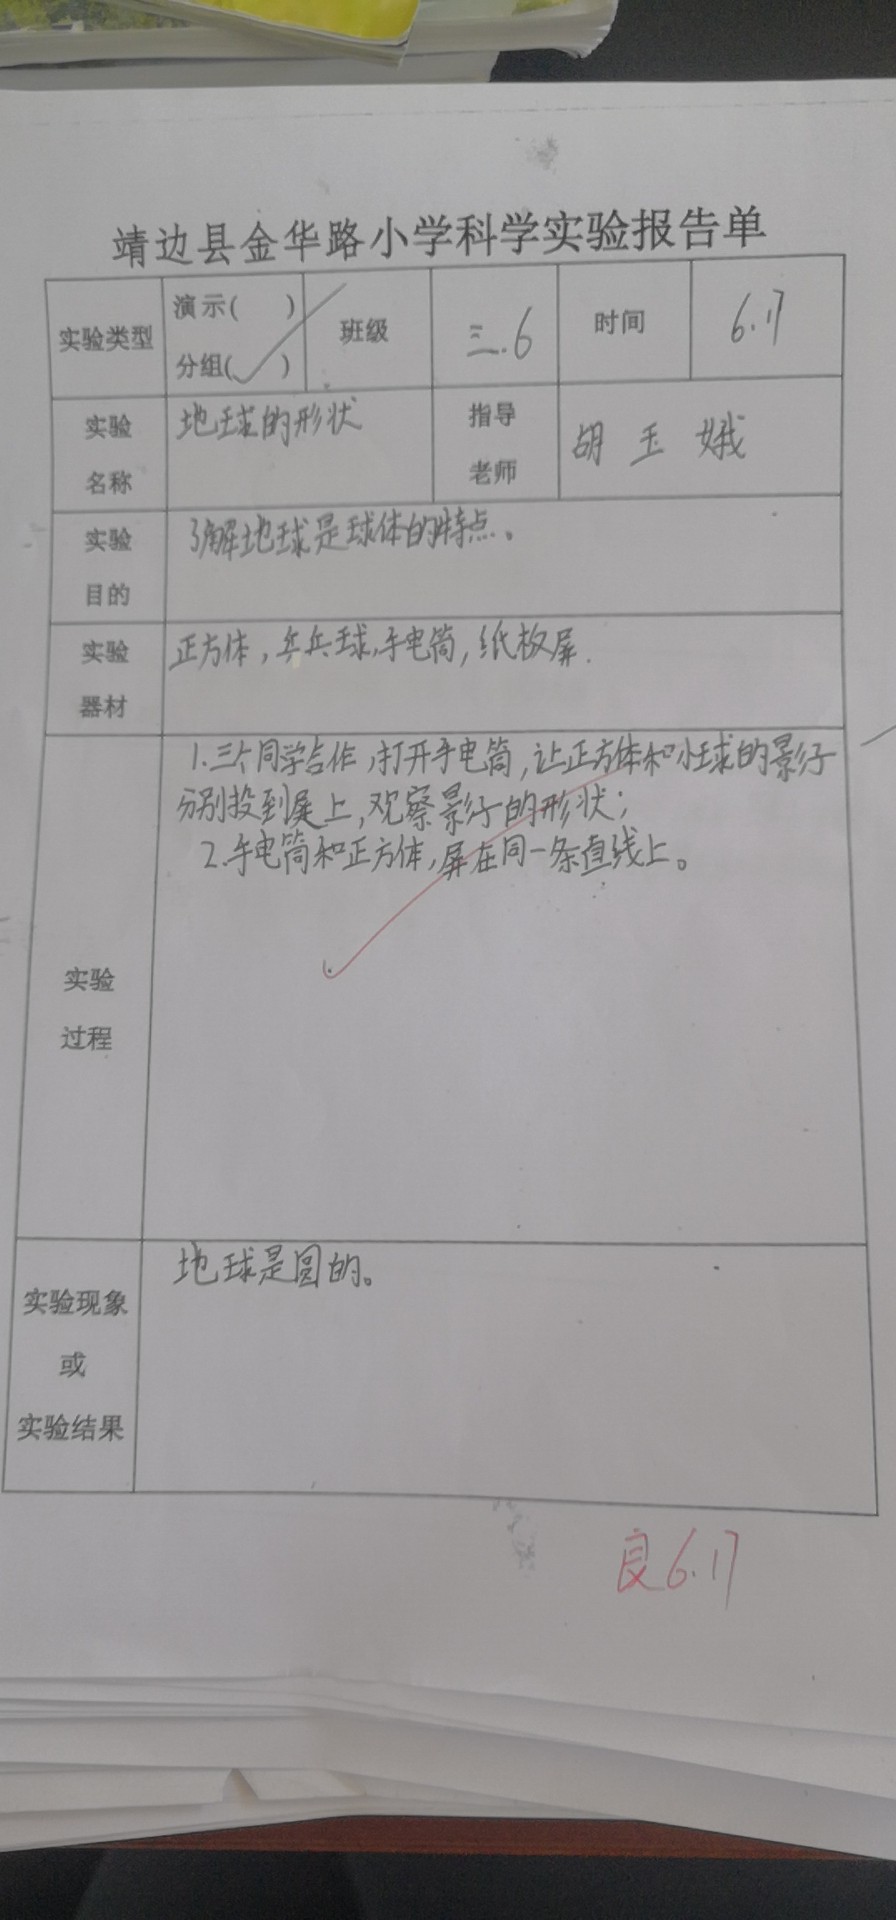 靖边县金华路小学科学实验报告单
实验类型
演示( )
分组(✓)
班级
三.6
时间
6.17
实验
名称
地球的形状
指导
老师
胡玉娥
实验
目的
了解地球是球体的特点。
实验
器材
正方体，乒乓球，手电筒，纸板屏.
实验
过程
1.三个同学合作，打开手电筒，让正方体和小球的影子
分别投到屏上，观察影子的形状；
2.手电筒和正方体，屏在同一条直线上。
实验现象
或
实验结果
地球是圆的。
良6.17